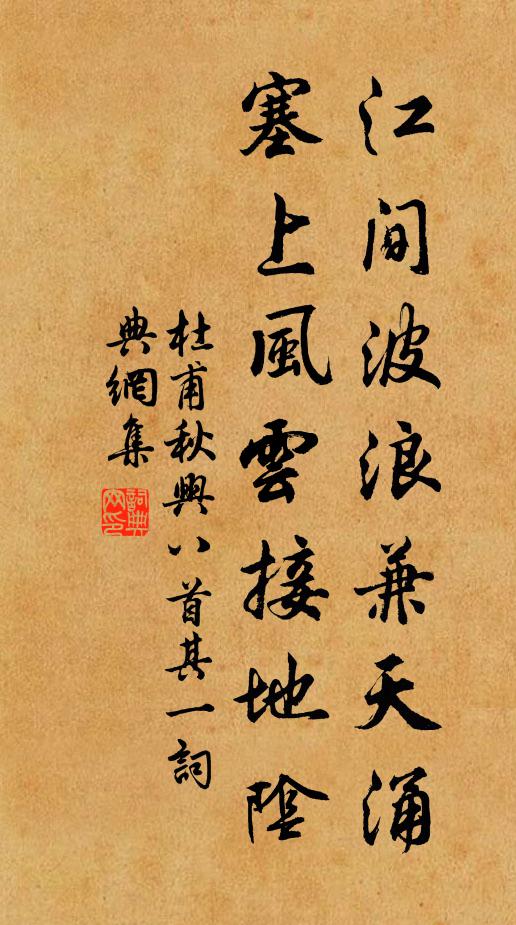 江間波浪兼天涌
塞上風雲接地陰
杜甫秋興八首其一詞
典網集
詞典
网印